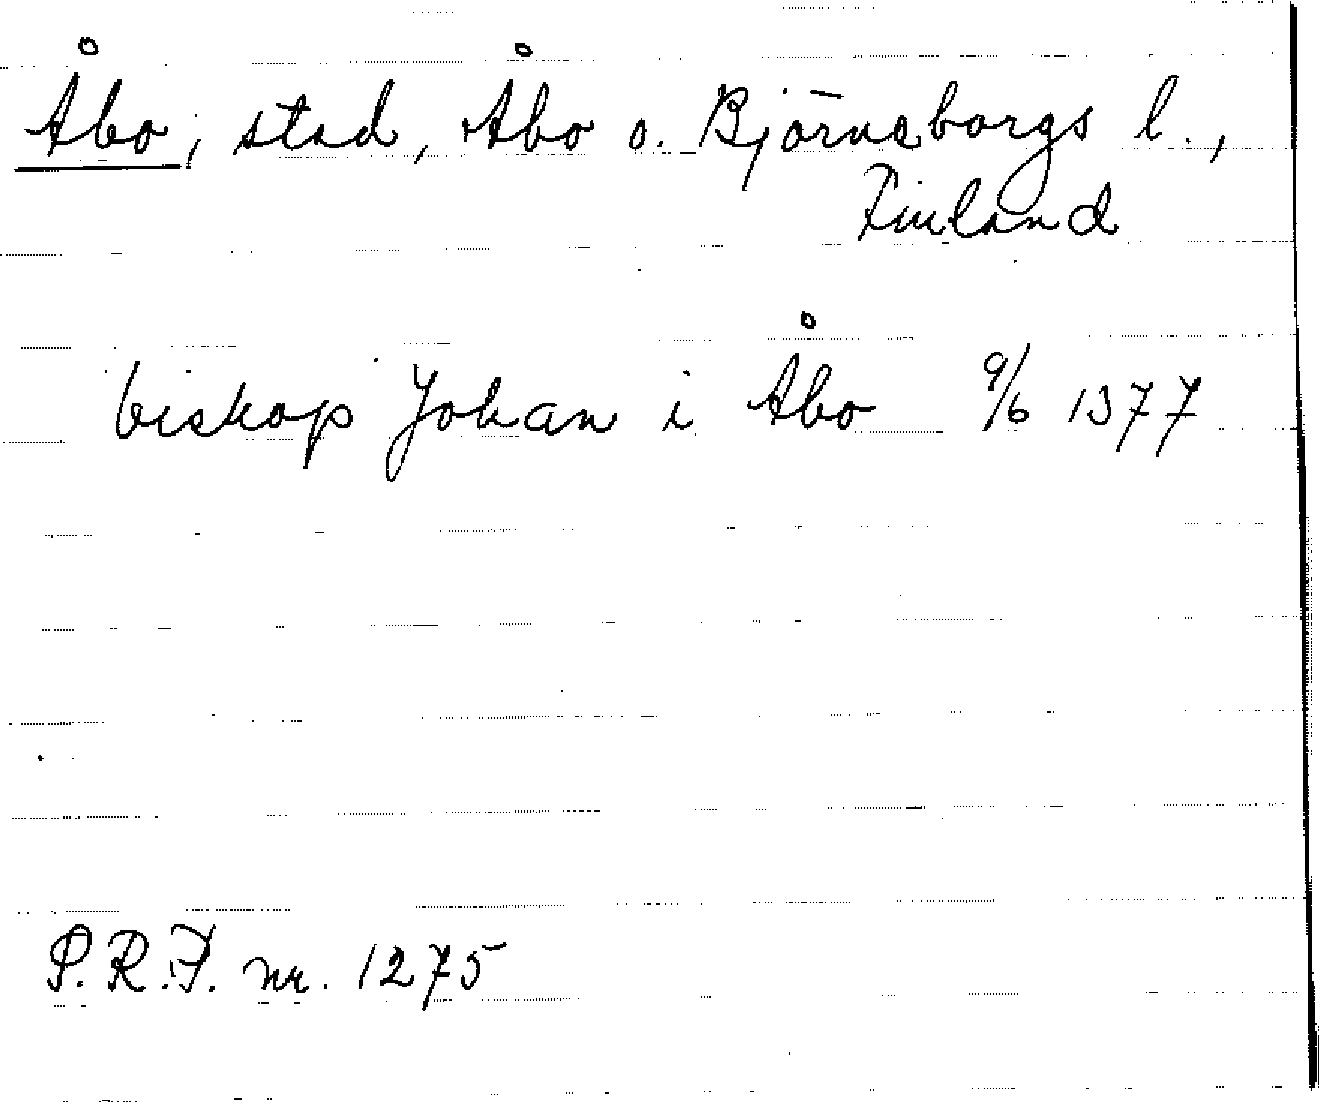 Åbo, stad, Åbo o. Björneborgs l.,
Finland
biskop Johan i Åbo 9/6 1377
P.R.F. nr. 1275